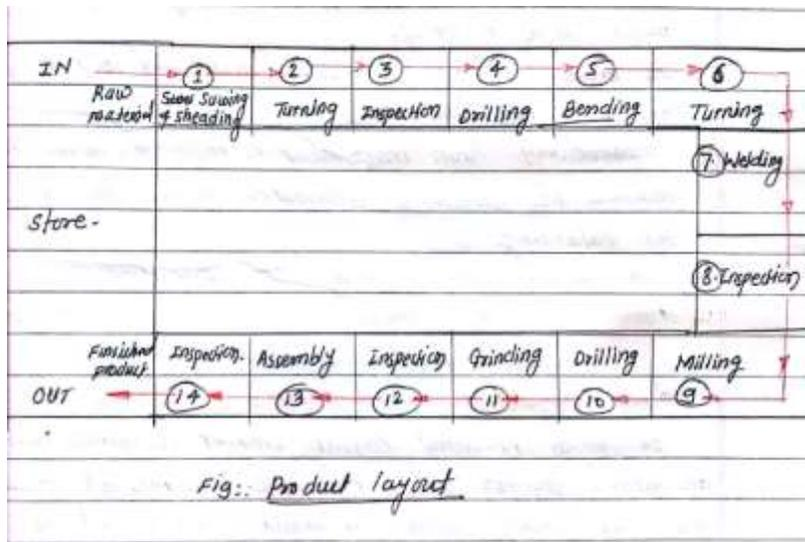 IN
Raw material
1
Sawing & sheading
2
Turning
3
Inspection
4
Drilling
5
Bending
6
Turning
7. Welding
Store-
8. Inspection
Finished product
OUT
Inspection.
14
Assembly
13
Inspection
12
Grinding
11
Drilling
10
Milling
9
Fig:. Product layout